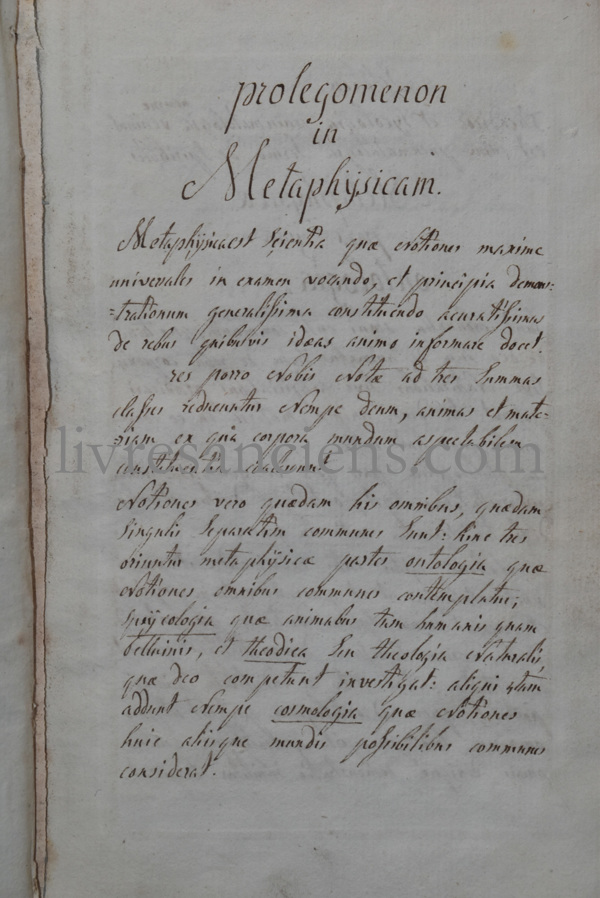 prolegomenon
in
Metaphÿsicam.
Metaphÿsica est Scientia quæ notiones maxime
universales in examen vocando, et principia demons:
:trationum generalissima constituendo acuratissimas
de rebus quibusvis ideas animo informare docet.
res porro Nobis Notæ ad tres Summas
classes reducuntur Nempe deum, animas et mate:
:riam ex qua corpora mundum aspectabilem
constituentia
livresanciens.com
Notiones vero quædam his omnibus, quædam
Singulis Separatim communes Sunt: hinc tres
oriuntur metaphÿsicæ partes ontologia quæ
Notiones omnibus communes contemplatur;
psÿcologia quæ animabus tam humanis quam
belluinis, et theodicea Seu theologia Naturalis,
quæ deo competunt investigat: aliqui 4tam
addunt Nempe cosmologia quæ Notiones
huic aliisque mundis possibilibus communes
considerat.